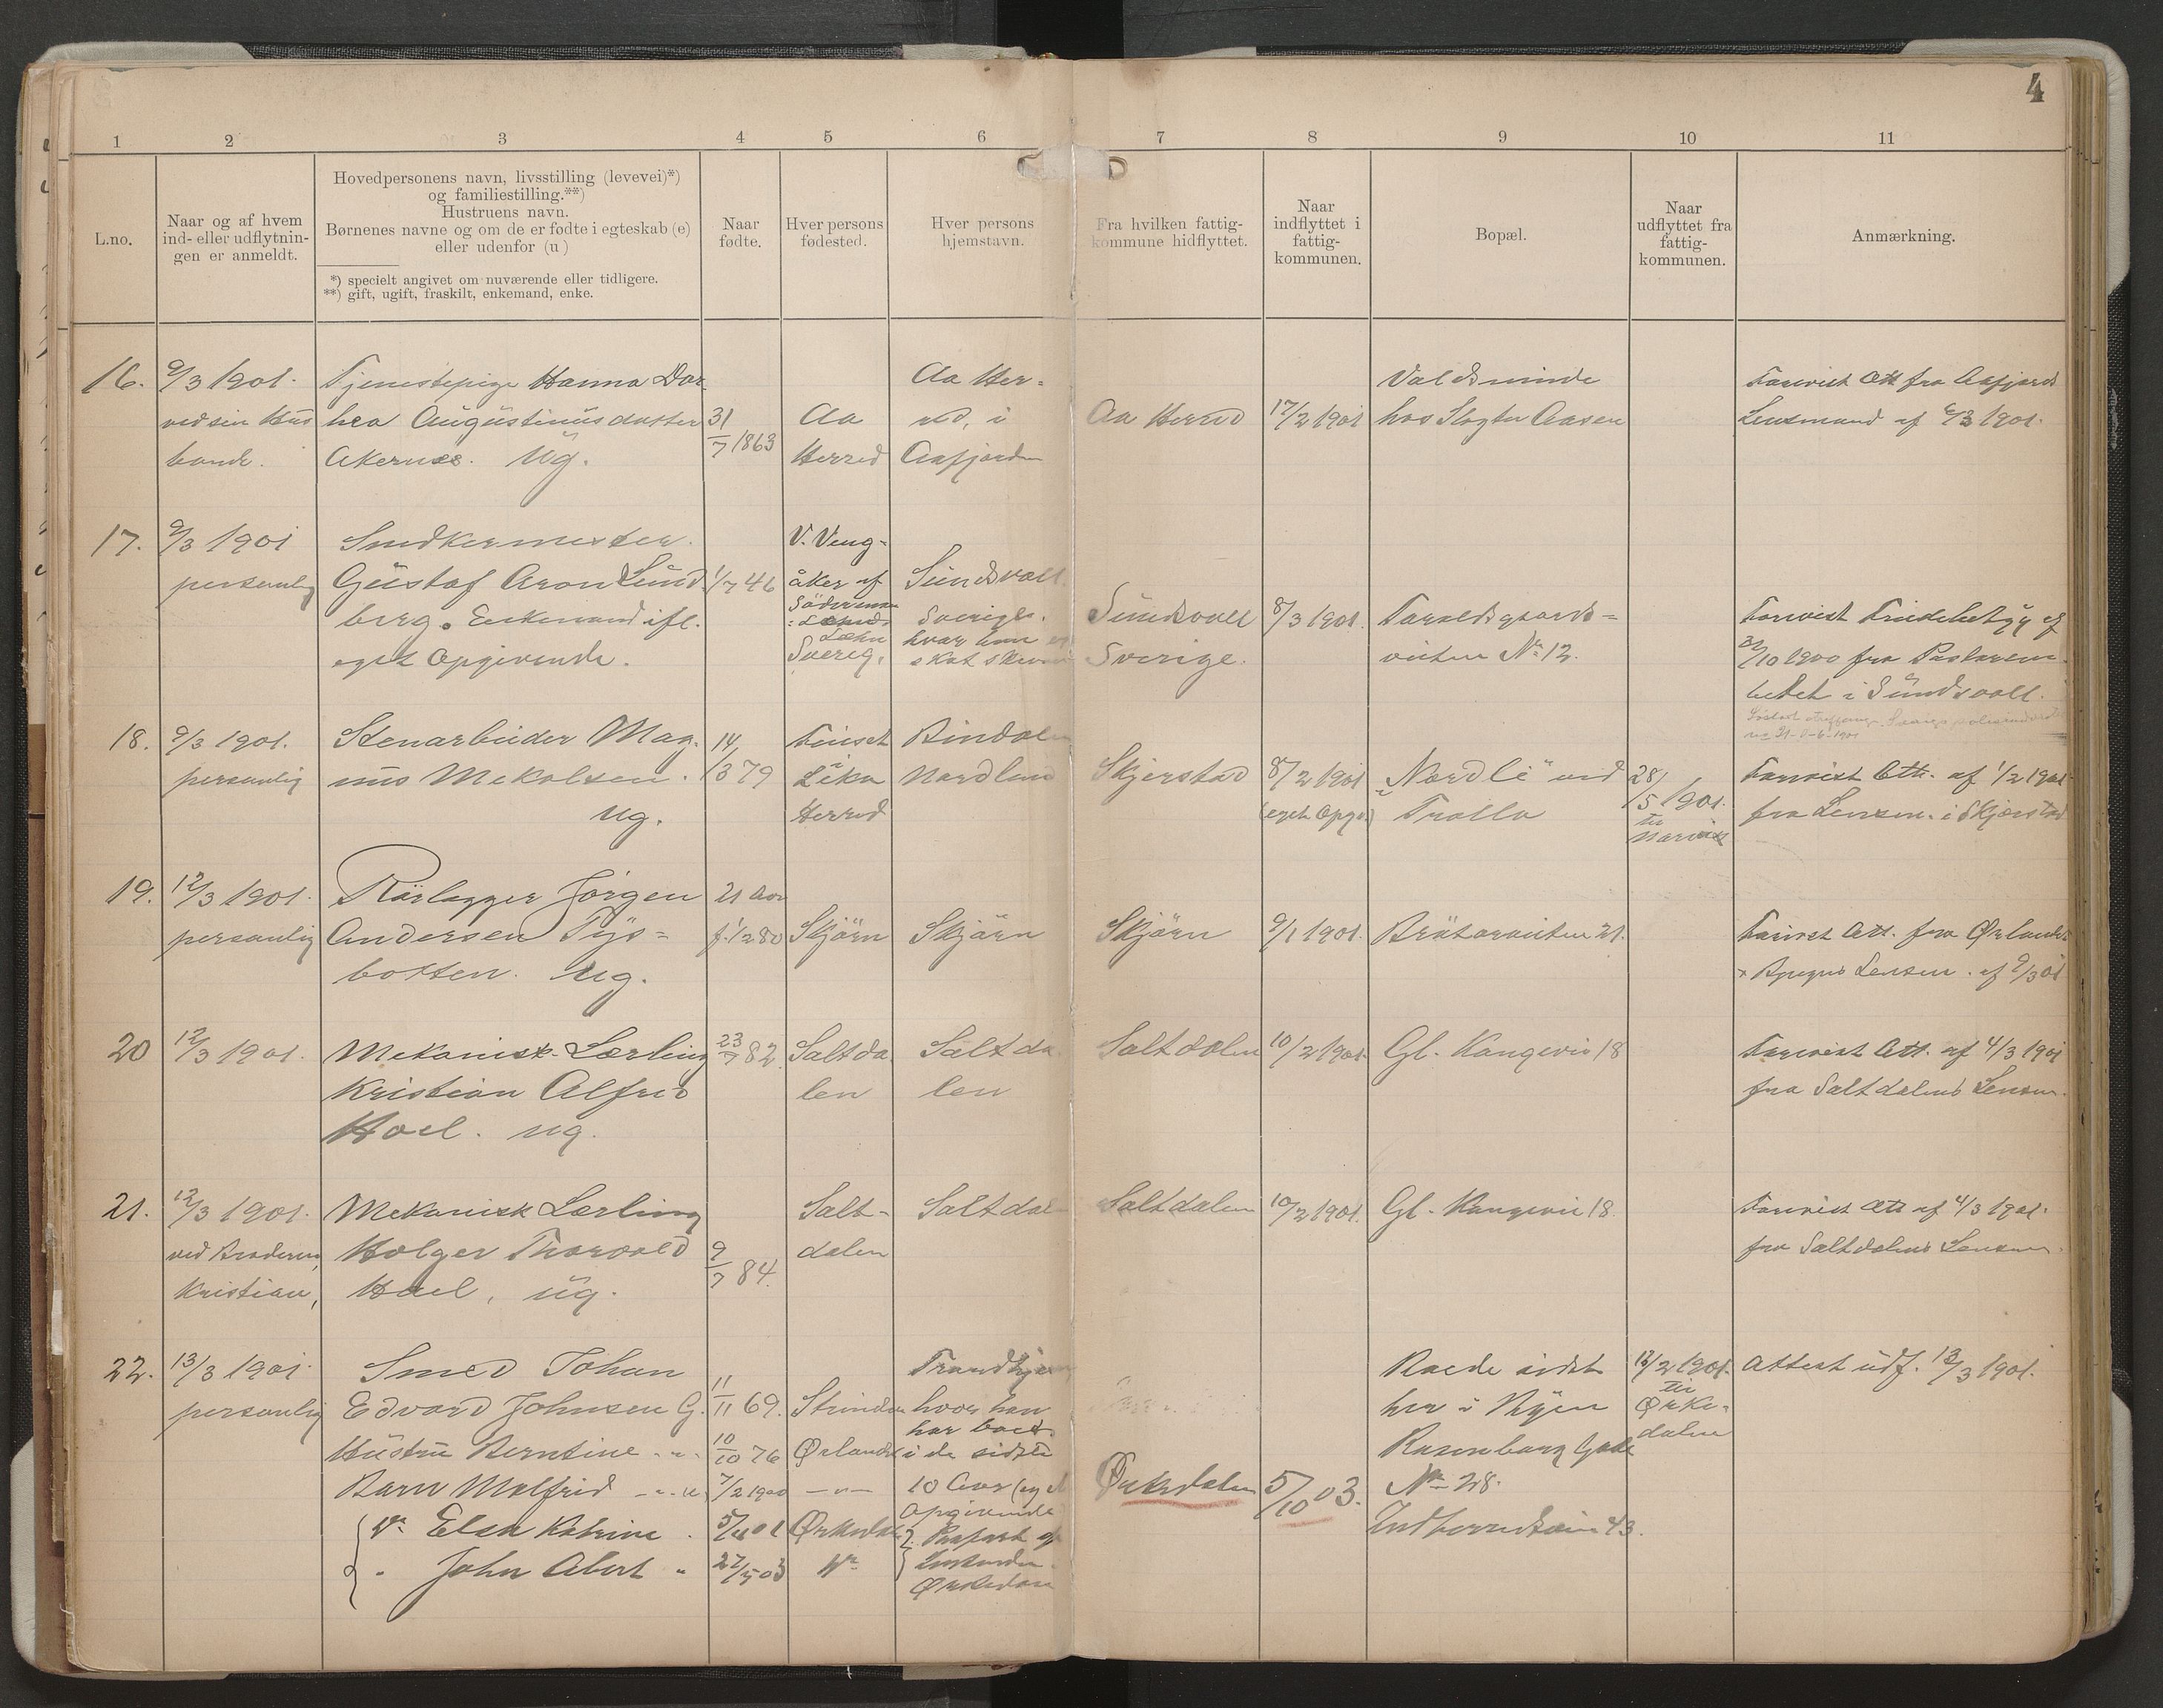 4
1 2 3 4 5 6 7 8 9 10 11
L.no.
Naar og af hvem
ind- eller udflytnin-
gen er anmeldt.
Hovedpersonens navn, livsstilling (levevei)*)
og familiestilling.**)
Hustruens navn.
Børnenes navne og om de er fødte i egteskab (e)
eller udenfor (u)
*) specielt angivet om nuværende eller tidligere.
**) gift, ugift, fraskilt, enkemand, enke.
Naar
fødte.
Hver persons
fødested.
Hver persons
hjemstavn.
Fra hvilken fattig-
kommune hidflyttet.
Naar
indflyttet i
fattig-
kommunen.
Bopæl.
Naar
udflyttet fra
fattig-
kommunen.
Anmærkning.
16.
9/3 1901.
ved sin Hus
bond.
Tjenestepige Hanna Dor
hea Augustinusdatter
Akernes. Ug.
31/7 1863
Aa
Herred
Aa Her-
red, i
Aafjorden
Aa Herred
17/2 1901
Valdsminde
hos Slagter Aasen
Forevist Att fra Aafjords
Lensmand af 6/3 1901.
17.
9/3 1901
personlig
Snedkermester
Gustaf Aron Lund
berg. Enkemand ifl.
eget Opgivende.
1/7 46
V. Veng-
åker af
Söderman
Læhn
Sverig.
Sundsvall
Sverige.
hvor han
Sundsvall
Sverige.
8/3 1901.
Taraldsgaards-
veiten No 12.
Forevist Fredebetyg af
/10 1900 fra Pastorem-
betet i Sundsvall.
18.
9/3 1901.
personlig
Stenarbeider Mag-
nus Mekalsen.
ug.
14/3 79
Leka
Herred
Bindalen
Nordland
Skjerstad
8/2 1901
(eget Opgv.)
"Nordli" ved
Trolla
28/5 1901.
til
Narvik
Forevist Att. af 1/2 1901
fra Lensm. i Skjerstad
19.
12/3 1901.
personlig
Rörlægger Jörgen
Andersen Tys-
botten. ug.
21 Aar
f. 1/2 80
Skjörn
Skjörn
Skjörn
9/1 1901.
Brötorveiten 21.
Forevist Att. fra Ørlandet
Bjugns Lensm. af 9/3 01
20
12/3 1901.
Mekanisk Lærling
Kristian Alfred
Hoel. ug.
23/7 82
Saltda
len
Saltda
len
Saltdalen
10/2 1901.
Gl. Kongevei 18
Forevist Att. af 4/3 1901
fra Saltdalens Lensm.
21.
12/3 1901.
ved Broderen,
Kristian,
Mekanisk Lærling
Holger Thorvald
Hoel, ug.
9/7 84.
Salt-
dalen
Saltdalen
Saltdalen
10/2 1901.
Gl. Kongevei 18.
Forevist Att af 4/3 1901.
fra Saltdalens Lensm.
22.
13/3 1901.
personlig
Smed Johan
Edvard Johnsen G.
Hustru Berntine - " -
Barn Malfrid - " - u
" Elen Katrine "
" John Albert "
11/11 69.
10/10 76
7/2 1900
5/4 01
27/5 03
Strinden
Ørlandet
- " -
Orkedal
"
Trondhjem
hvor han
har boet
i de sidste
10 Aar (eget
Opgivende
Orkedalen
Orkedalen
5/10 03.
Boede sidst
her i Byen
Rosenborg Gade
No 28.
Indherredsveien 43.
12/2 1901.
til
Orke-
dalen
Attest udf. 13/3 1901.